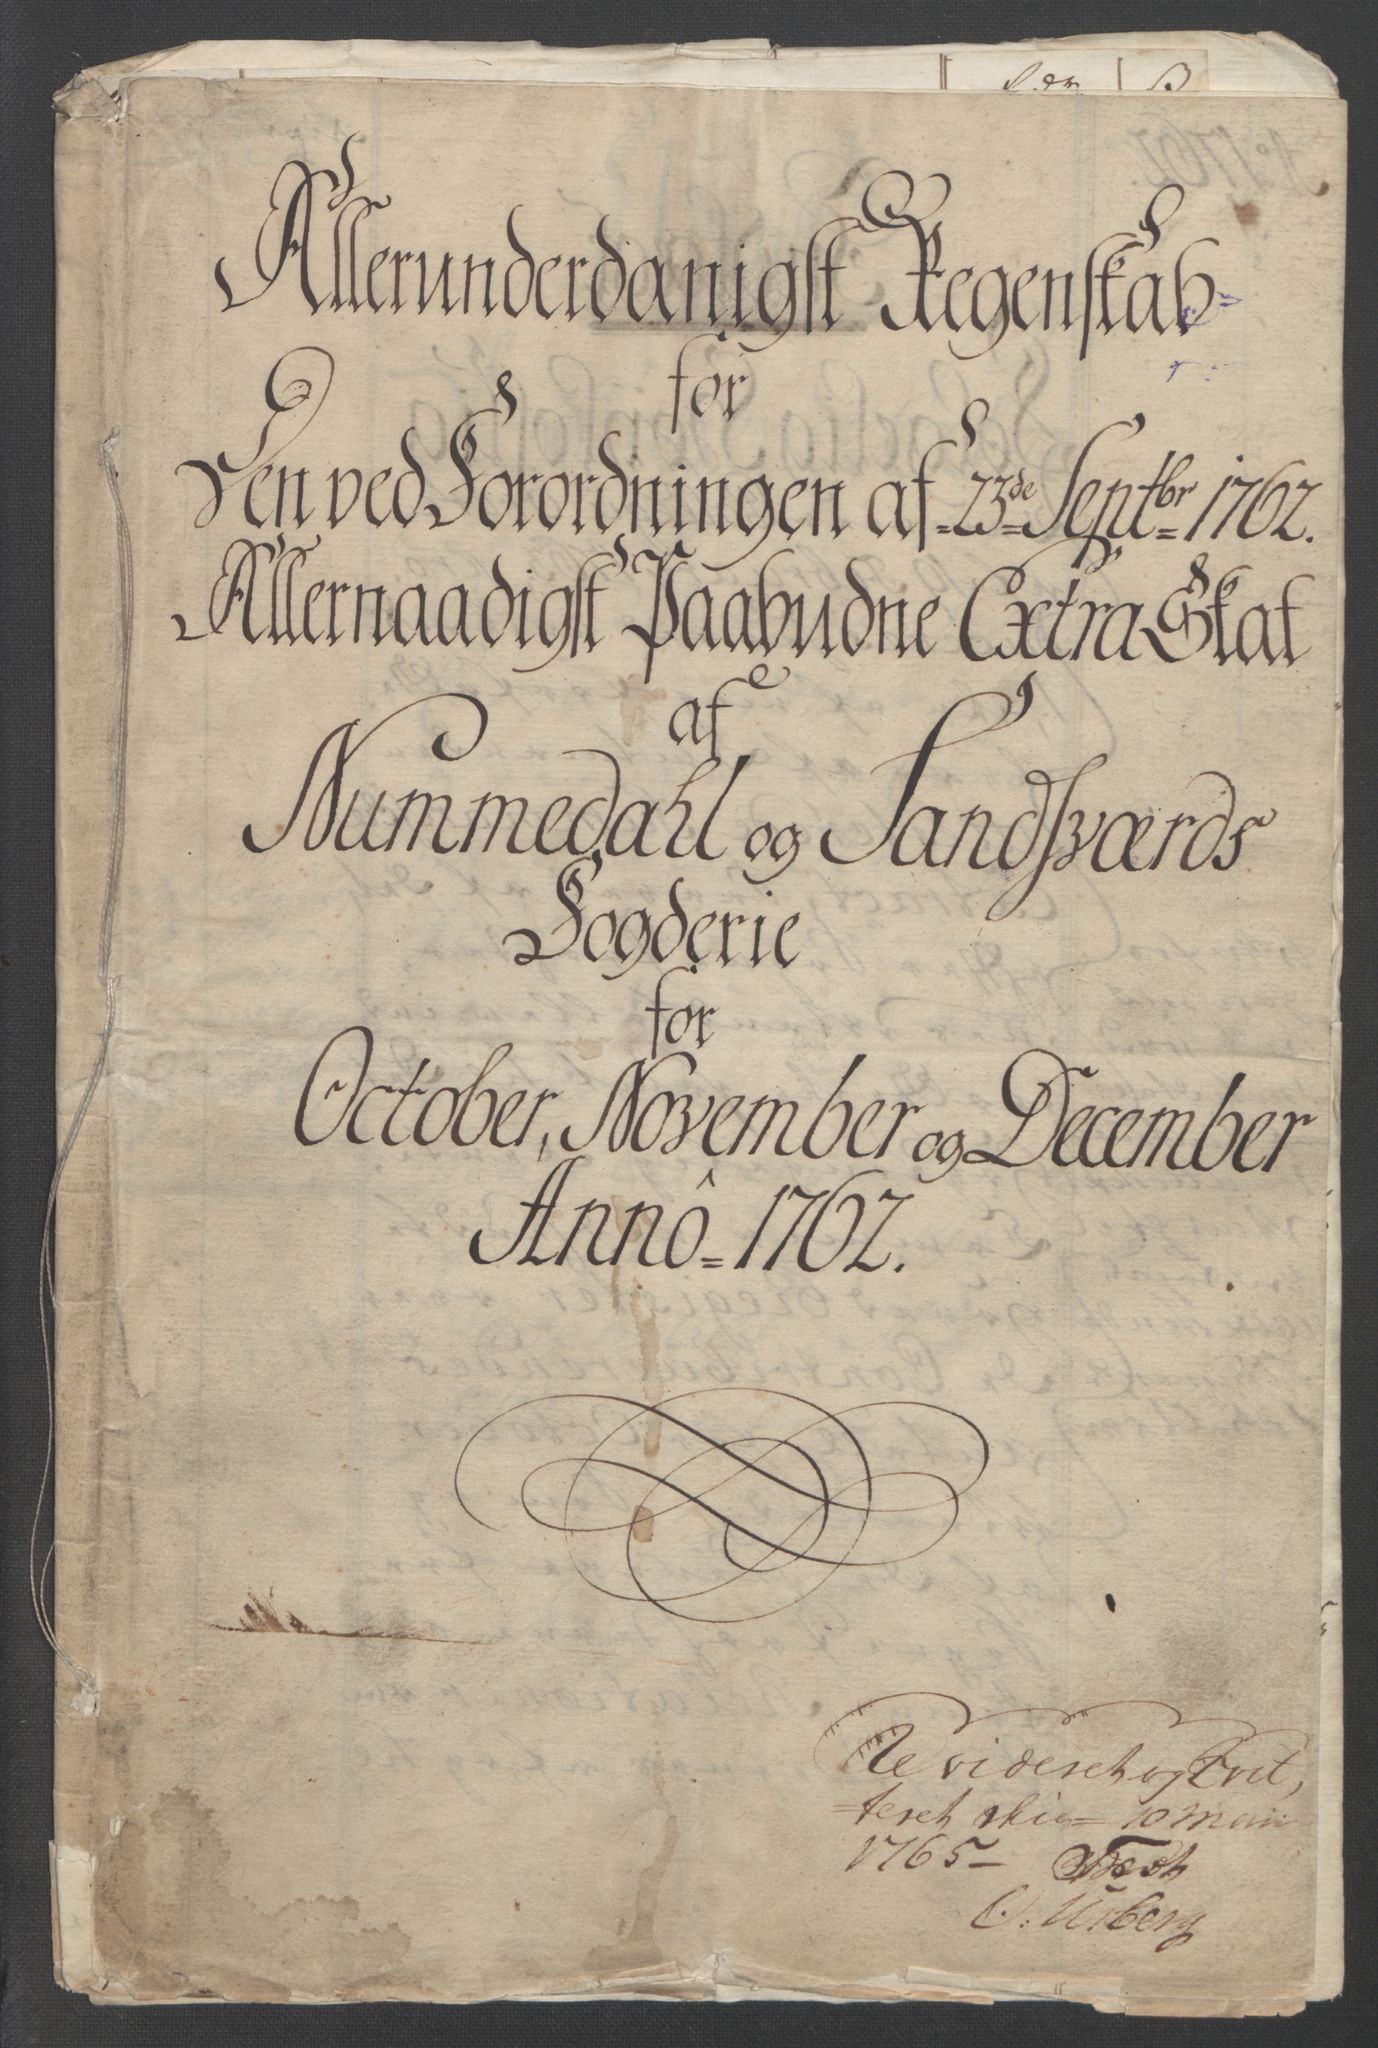 Allerunderdanigst Regenskab
for
Den ved Forordningen af 23de Septbr 1762.
Allernaadigst Paabudne Extra Skat
af
Nummedahl og Sandsværds
Fogderie
for
October, November og December
Annô 1762.
Revideret og Qvit,
teret skie 10 Maii
1765
O: Urberg